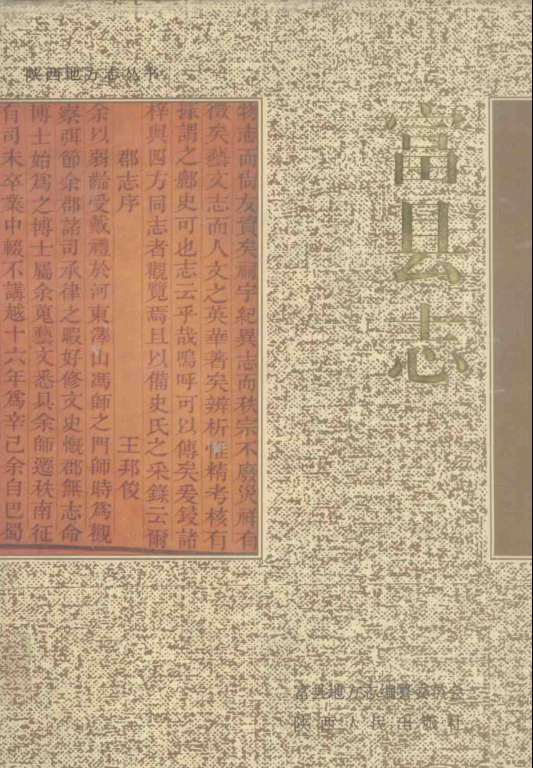 陕西地方志丛书
富县志
物志而尚友賁矣祠宇紀異志而秩宗不廢災祥有
徵矣藝文志而人文之英華著矣辨析惟精考核有
據謂之鄜史可也志云乎哉嗚呼可以傳矣爰鋟諸
梓與四方同志者觀覽焉且以備史氏之采錄云爾
郡志序 王邦俊
余以弱齡受戴禮於河東澤山馮師之門師時爲觀
察弭節余郡諸司承律之暇好修文史慨郡無志命
博士始爲之博士屬余蒐藝文悉具余師遷秩南征
有司未卒業中輟不講越十六年爲辛巳余自巴蜀
富县地方志编纂委员会
陕西人民出版社